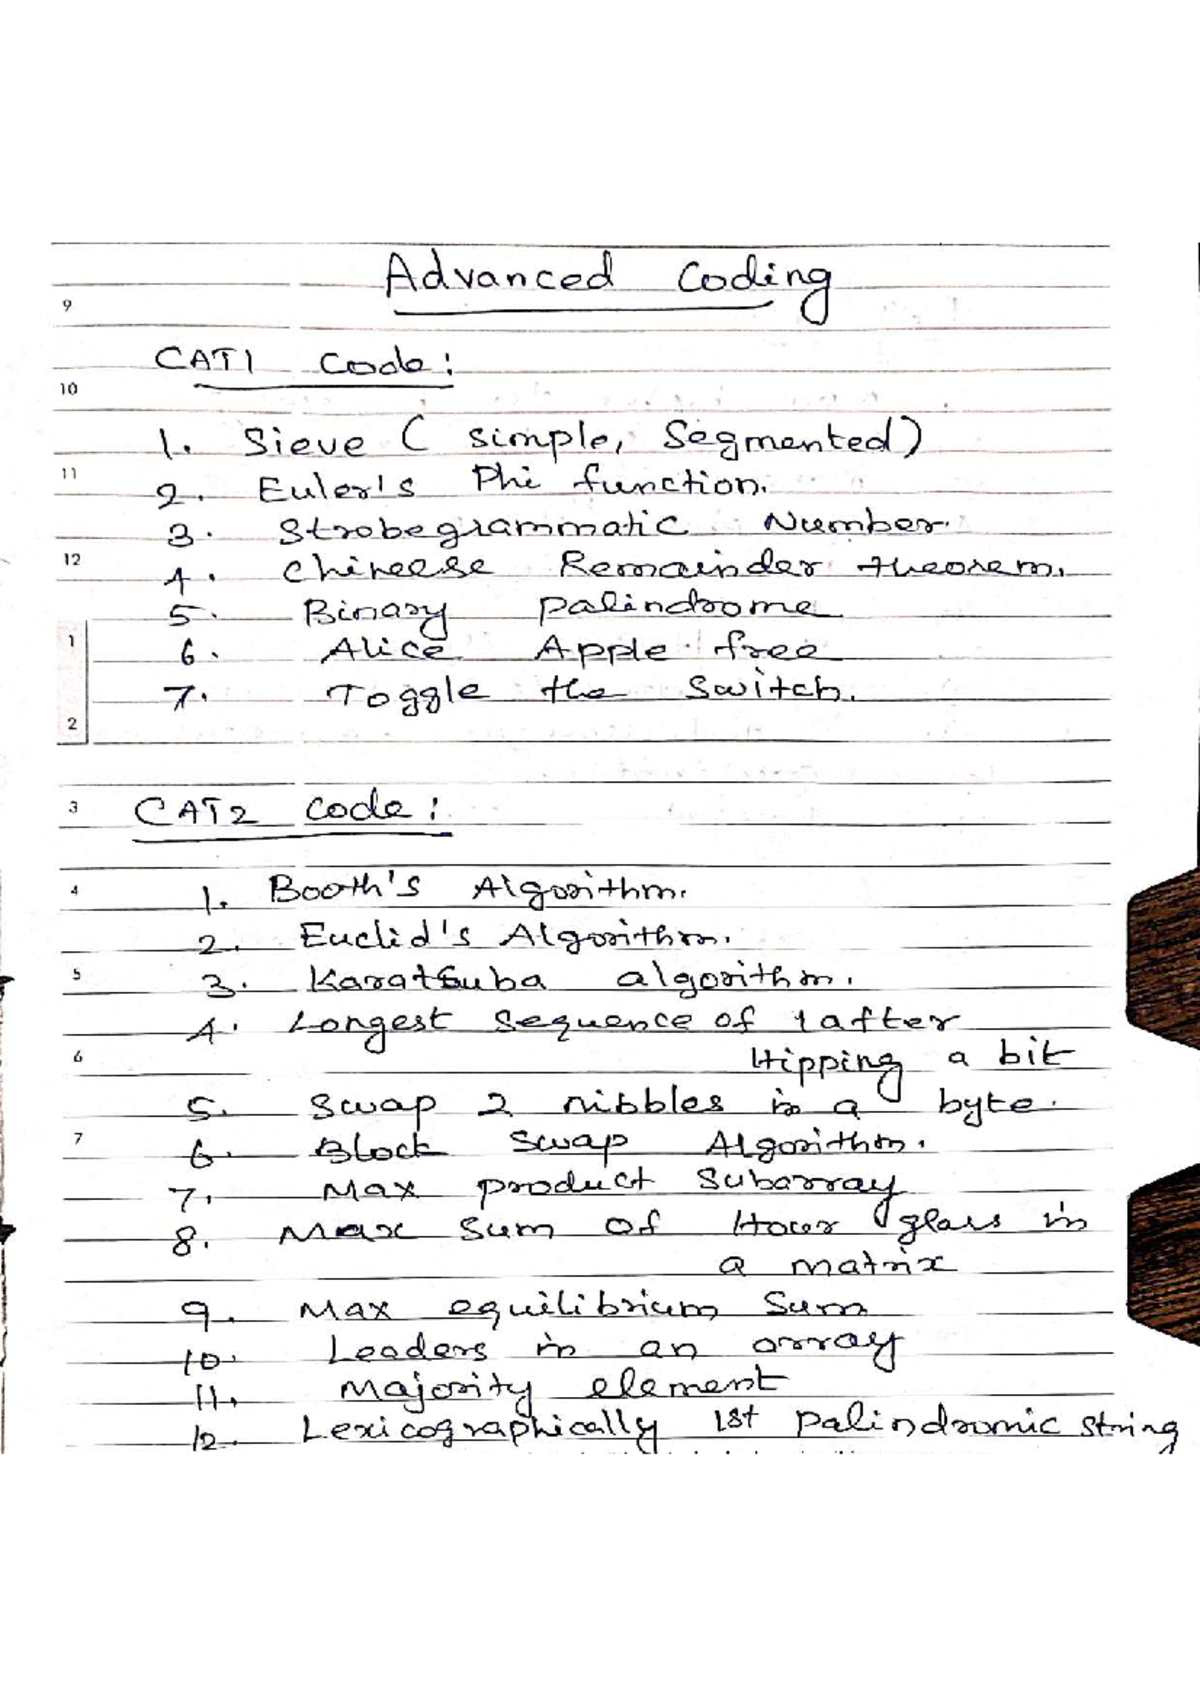 Advanced Coding
9
CAT1 Code:
10
1. Sieve ( simple, Segmented)
11
2. Euler's Phi function.
3. Strobegrammatic Number.
12
4. Chineese Remainder theorem.
5. Binary palindrome
1
6. Alice Apple free
7. Toggle the Switch.
2
3
CAT2 Code:
4
1. Booth's Algorithm.
2. Euclid's Algorithm.
5
3. Karatsuba algorithm.
4. Longest Sequence of 1 after
6
flipping a bit
5. Swap 2 nibbles in a byte.
7
6. Block Swap Algorithm.
7. Max product Subarray
8. Max Sum of Hour glass in
a matrix
9. Max equilibrium Sum
10. Leaders in an array
11. Majority element
12. Lexicographically 1st palindromic string